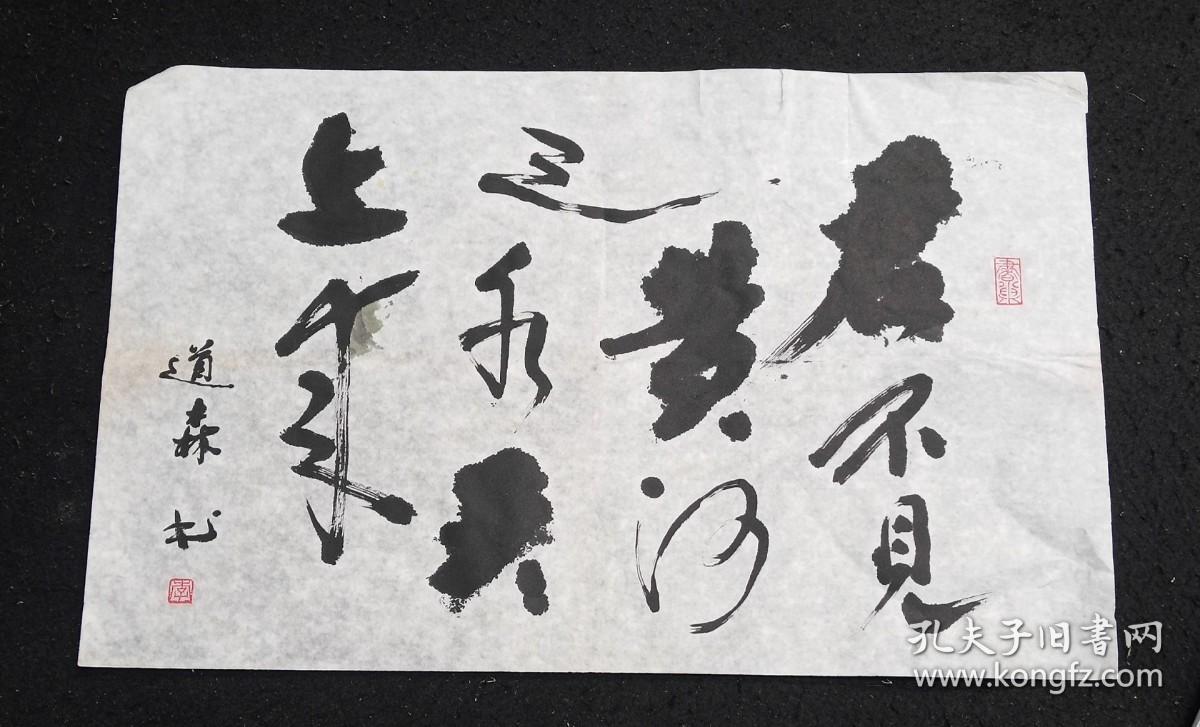 君不见
黄河
之水天
上来
道森书
孔夫子旧書网
www.kongfz.com